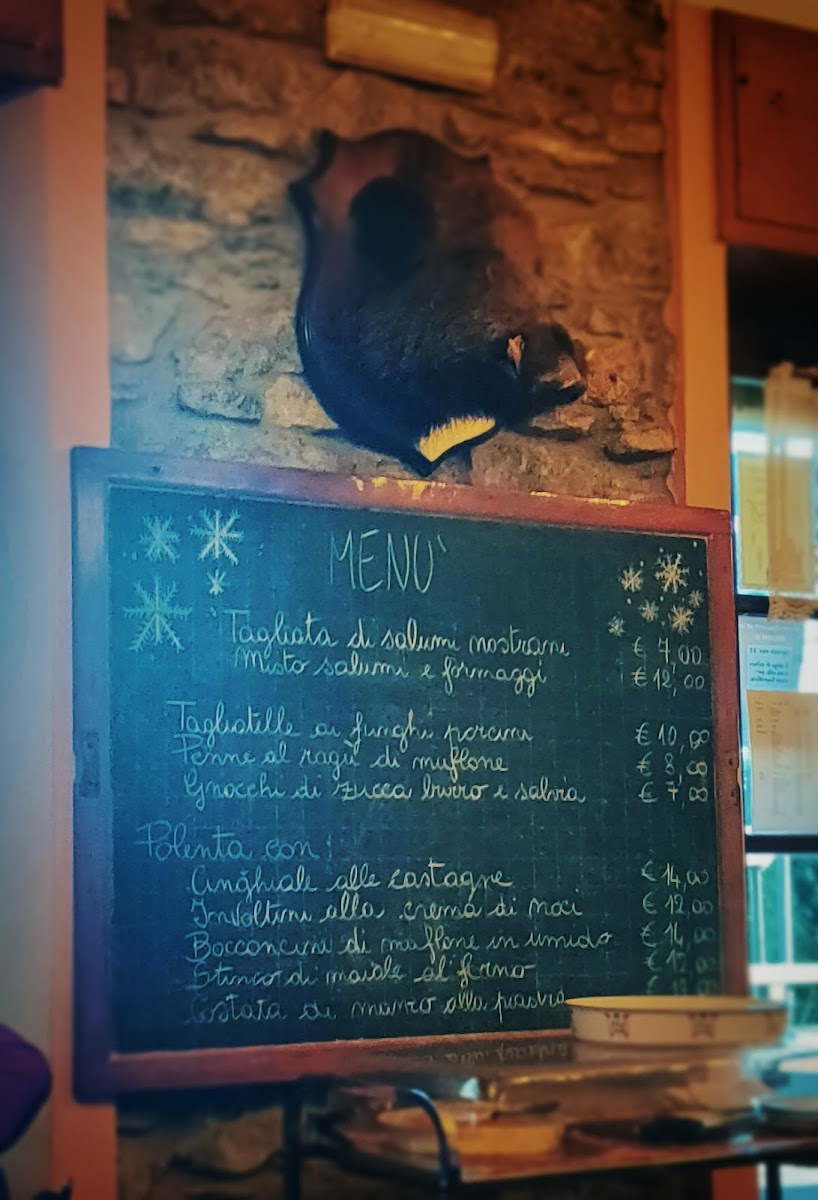 MENU'
Tagliata di salumi nostrani € 7,00
Misto salumi e formaggi € 12,00
Tagliatelle ai funghi porcini € 10,00
Penne al ragù di muflone € 8,00
Gnocchi di zucca burro e salvia € 7,00
Polenta con:
Cinghiale alle castagne € 14,00
Involtini alla crema di noci € 12,00
Bocconcini di muflone in umido € 14,00
Stinco di maiale al forno €
Costata di manzo alla piastra